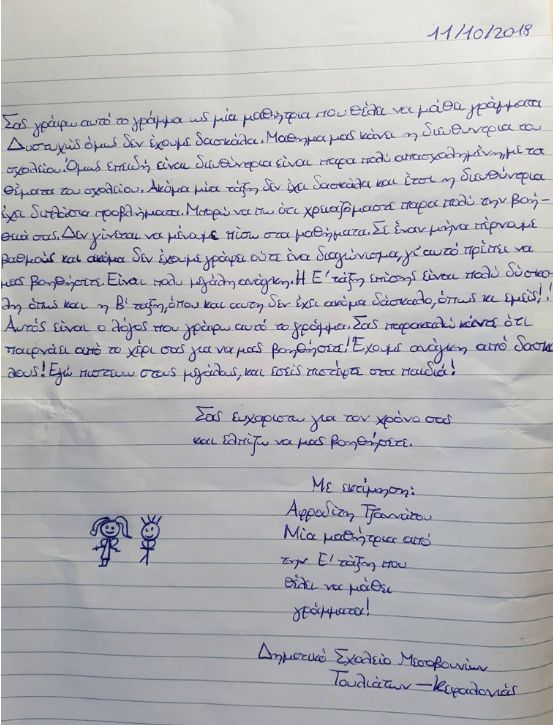 11/10/2018
Σας γράφω αυτό το γράμμα ως μία μαθήτρια που θέλει να μάθει γράμματα
Δυστυχώς όμως δεν έχουμε δασκάλα. Μάθημα μας κάνει η διευθύντρια του
σχολείου. Όμως επειδή είναι διευθύντρια είναι παρα πολύ απασχολημένη με τα
θέματα του σχολείου. Ακόμα μία τάξη δεν έχει δασκάλα και έτσι η διευθύντρια
έχει διπλάσια προβλήματα. Μπορώ να πω ότι χρειαζόμαστε παρα πολύ την βοή-
θειά σας. Δεν γίνεται να μένουμε πίσω στα μαθήματα. Σε έναν μήνα παίρνουμε
βαθμούς και ακόμα δεν έχουμε γράψει ούτε ένα διαγώνισμα, γι' αυτό πρέπει να
μας βοηθήσετε. Είναι πολύ μεγάλη ανάγκη. Η Ε' τάξη επίσης είναι πολύ δύσκο-
λη όπως και η Β' τάξη, όπου και αυτη δεν έχει ακόμα δάσκαλο, όπως κι εμείς!!
Αυτός είναι ο λόγος που γράφω αυτό το γράμμα. Σας παρακαλώ κάντε ότι
παιρνάει από το χέρι σας για να μας βοηθήσετε! Έχουμε ανάγκη από δασκά-
λους! Εγώ πιστεύω στους μεγάλους, και εσείς πιστέψτε στα παιδιά!
Σας ευχαριστω για τον χρόνο σας
και ελπίζω να μας βοηθήσετε.
Με εκτίμηση:
Αφροδίτη Τζαννάτου
Μία μαθήτρια από
την Ε' τάξη που
θέλει να μάθει
γράμματα!
Δημοτικό Σχολείο Μεσοβουνίων
Τουλιάτων - Κεφαλονιάς